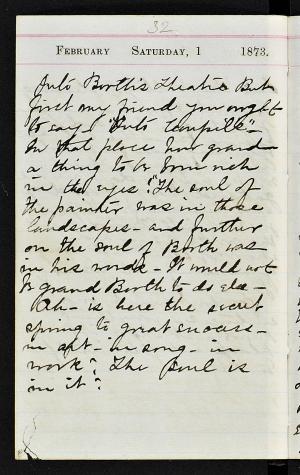 32
FEBRUARY SATURDAY, 1 1873.
into Booth's Theatre But
first my friend you ought
to say "into temple" -
In that place how grand
a thing to be born rich
in the eyes! "The soul of
the painter was in those
landscapes - and further
on the soul of Booth was
in his words - It would not
be grand Booth to do else -
Ah - is here the secret
spring to great success -
in art - in song - in
work? The soul is
in it?